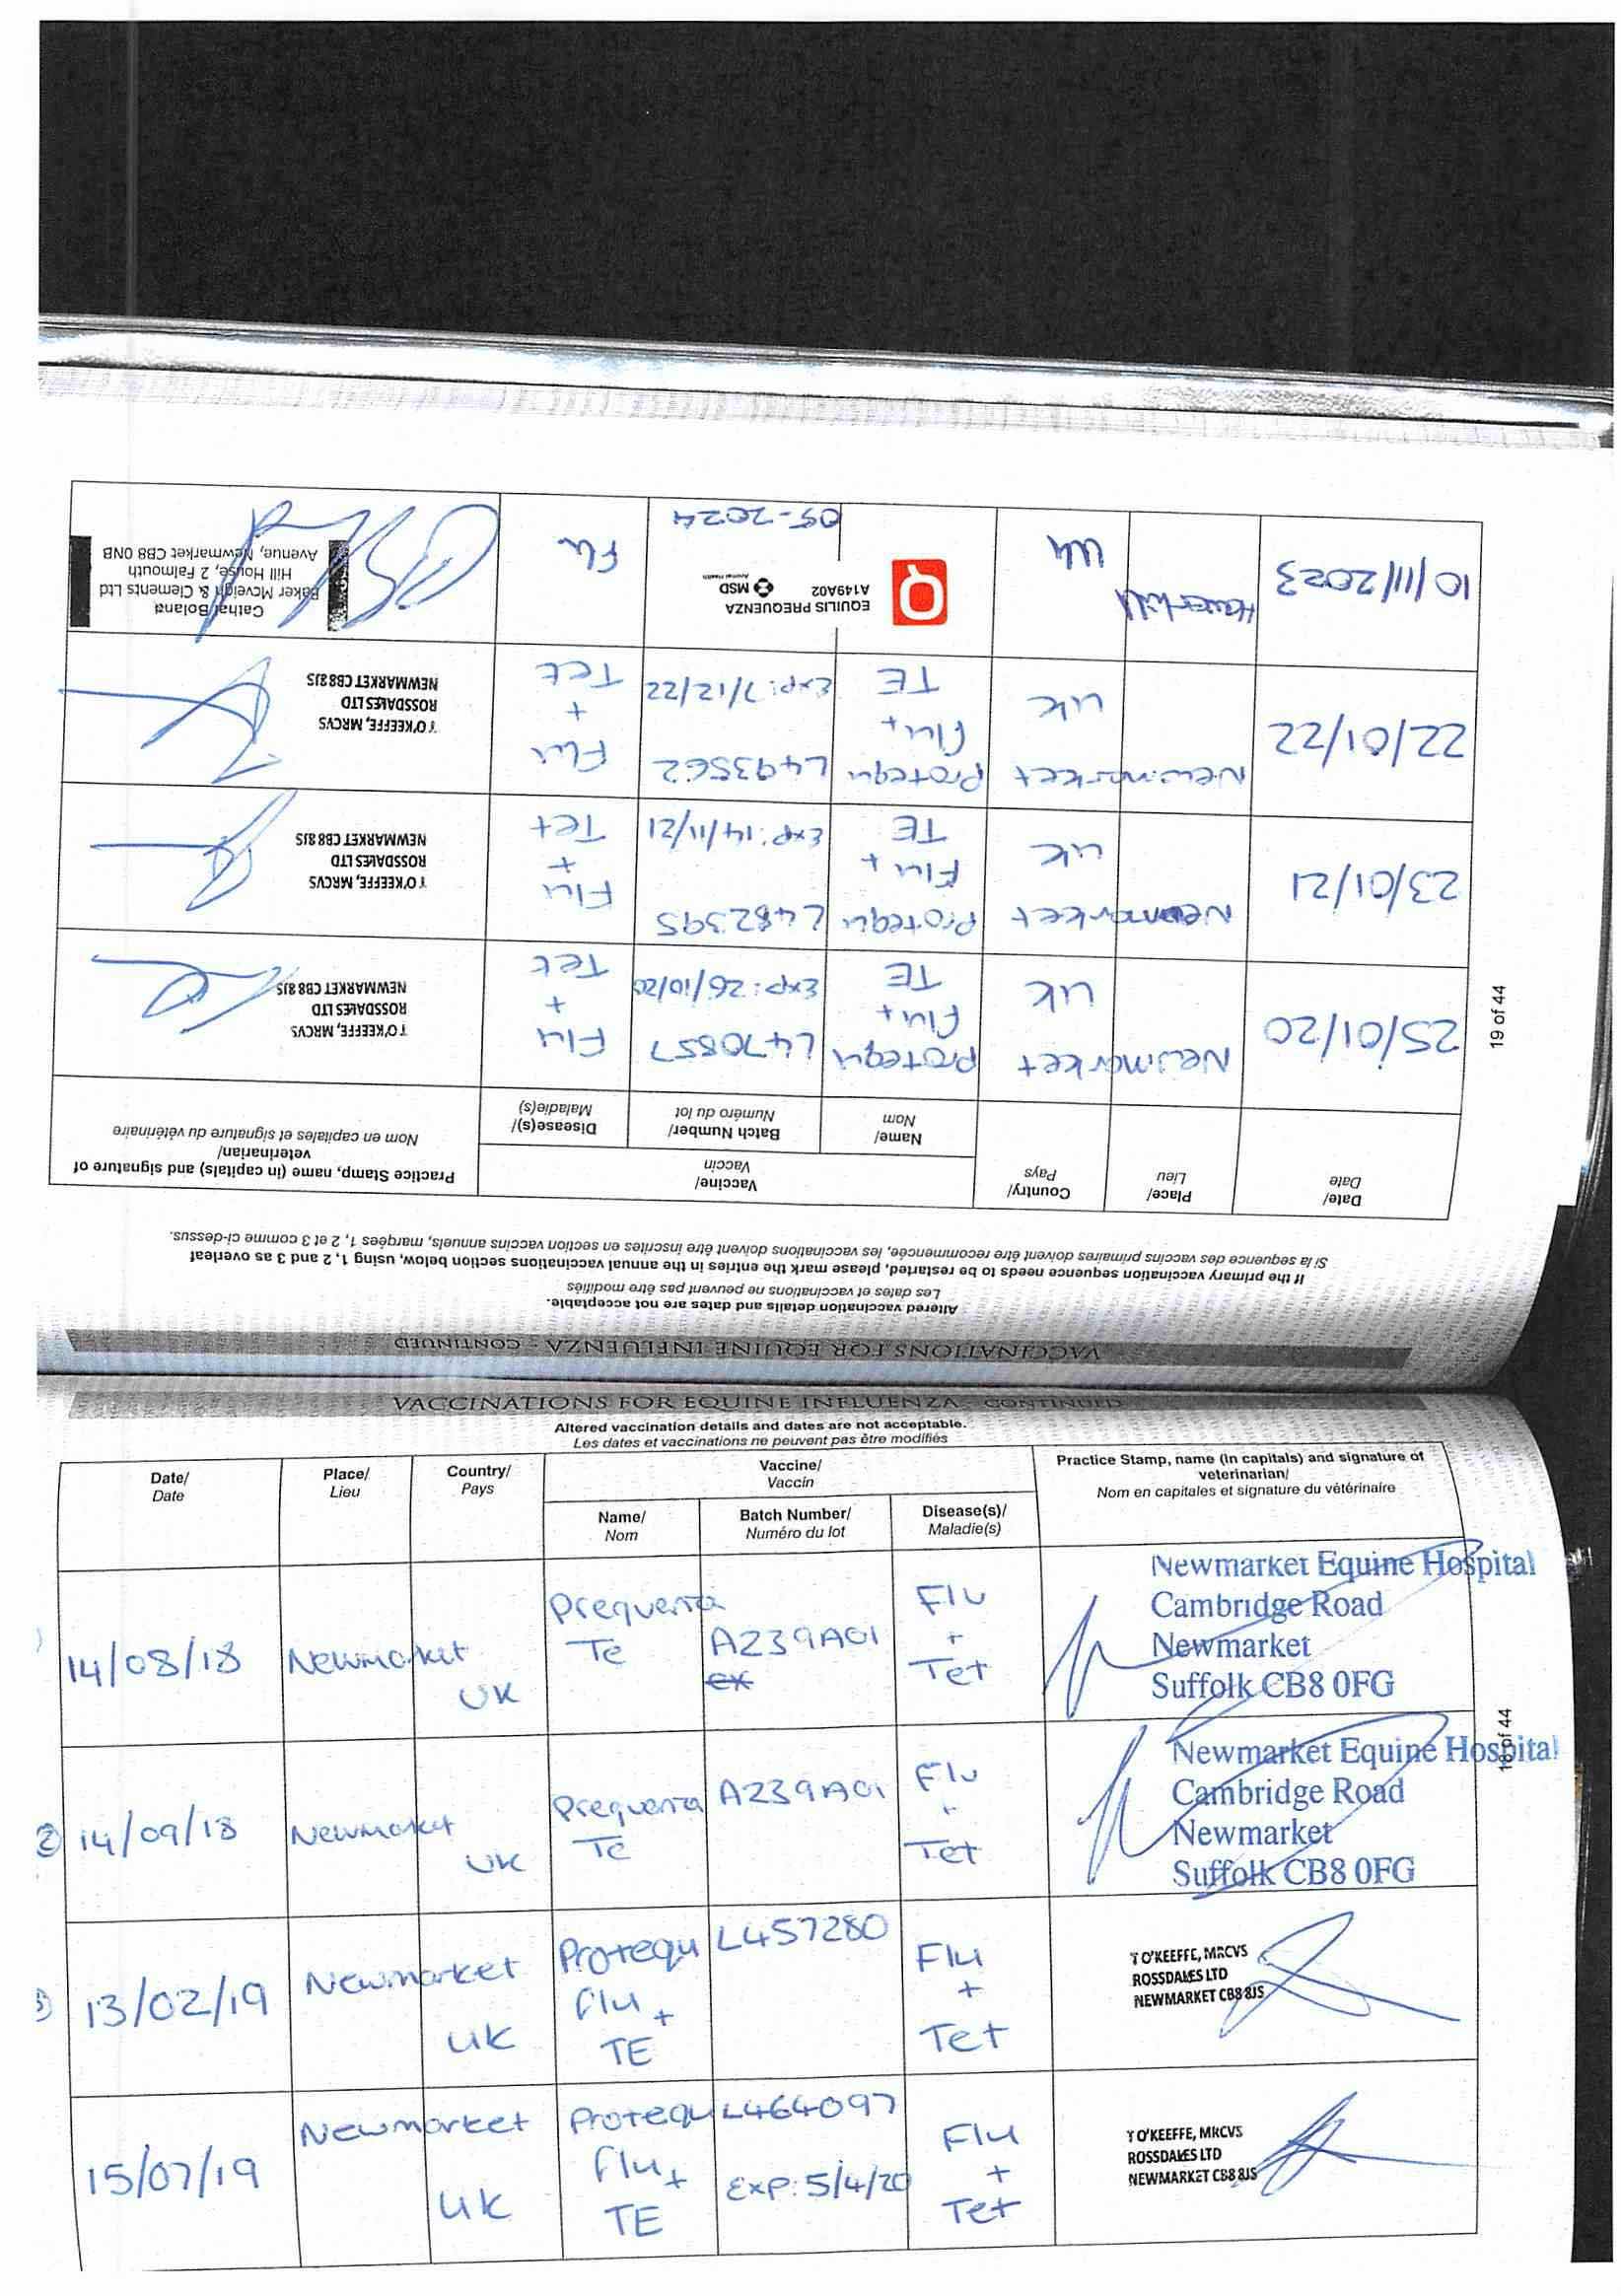 VACCINATIONS FOR EQUINE INFLUENZA - CONTINUED
Altered vaccination details and dates are not acceptable.
Les dates et vaccinations ne peuvent pas être modifiés
Date/
Date
Place/
Lieu
Country/
Pays
Vaccine/
Vaccin
Name/
Nom
Batch Number/
Numéro du lot
Disease(s)/
Maladie(s)
Practice Stamp, name (in capitals) and signature of
veterinarian/
Nom en capitales et signature du vétérinaire
14/08/18
Newmarket
UK
Prequenza
Te
A239A01
ex
Flu
+
Tet
Newmarket Equine Hospital
Cambridge Road
Newmarket
Suffolk CB8 0FG
2
14/09/18
Newmarket
UK
Prequenza
Te
A239A01
Flu
+
Tet
Newmarket Equine Hospital
Cambridge Road
Newmarket
Suffolk CB8 0FG
3
13/02/19
Newmarket
UK
Protequ
Flu +
TE
L457280
Flu
+
Tet
T O'KEEFFE, MRCVS
ROSSDALES LTD
NEWMARKET CB8 8JS
15/07/19
Newmarket
UK
Protequ
Flu +
TE
L464097
Exp: 5/4/20
Flu
+
Tet
T O'KEEFFE, MRCVS
ROSSDALES LTD
NEWMARKET CB8 8JS
18 of 44
VACCINATIONS FOR EQUINE INFLUENZA - CONTINUED
Altered vaccination details and dates are not acceptable.
Les dates et vaccinations ne peuvent pas être modifiés
If the primary vaccination sequence needs to be restarted, please mark the entries in the annual vaccinations section below, using 1, 2 and 3 as overleaf
Si la sequence des vaccins primaires doivent être recommencée, les vaccinations doivent être inscrites en section vaccins annuels, marqées 1, 2 et 3 comme ci-dessus.
Date/
Date
Place/
Lieu
Country/
Pays
Vaccine/
Vaccin
Name/
Nom
Batch Number/
Numéro du lot
Disease(s)/
Maladie(s)
Practice Stamp, name (in capitals) and signature of
veterinarian/
Nom en capitales et signature du vétérinaire
25/01/20
Newmarket
UK
Protequ
Flu +
TE
L470857
Exp: 26/10/20
Flu
+
Tet
T O'KEEFFE, MRCVS
ROSSDALES LTD
NEWMARKET CB8 8JS
23/01/21
Newmarket
UK
Protequ
Flu +
TE
L482395
Exp: 14/11/21
Flu
+
Tet
T O'KEEFFE, MRCVS
ROSSDALES LTD
NEWMARKET CB8 8JS
22/01/22
Newmarket
UK
Protequ
Flu +
TE
L493562
Exp: 7/12/22
Flu
+
Tet
T O'KEEFFE, MRCVS
ROSSDALES LTD
NEWMARKET CB8 8JS
10/11/2023
Haverhill
UK
EQUILIS PREQUENZA
A149A02
MSD
Animal Health
05-2024
Flu
Cathal Boland
Baker Mcveigh & Clements Ltd
Hill House, 2 Falmouth
Avenue, Newmarket CB8 0NB
19 of 44